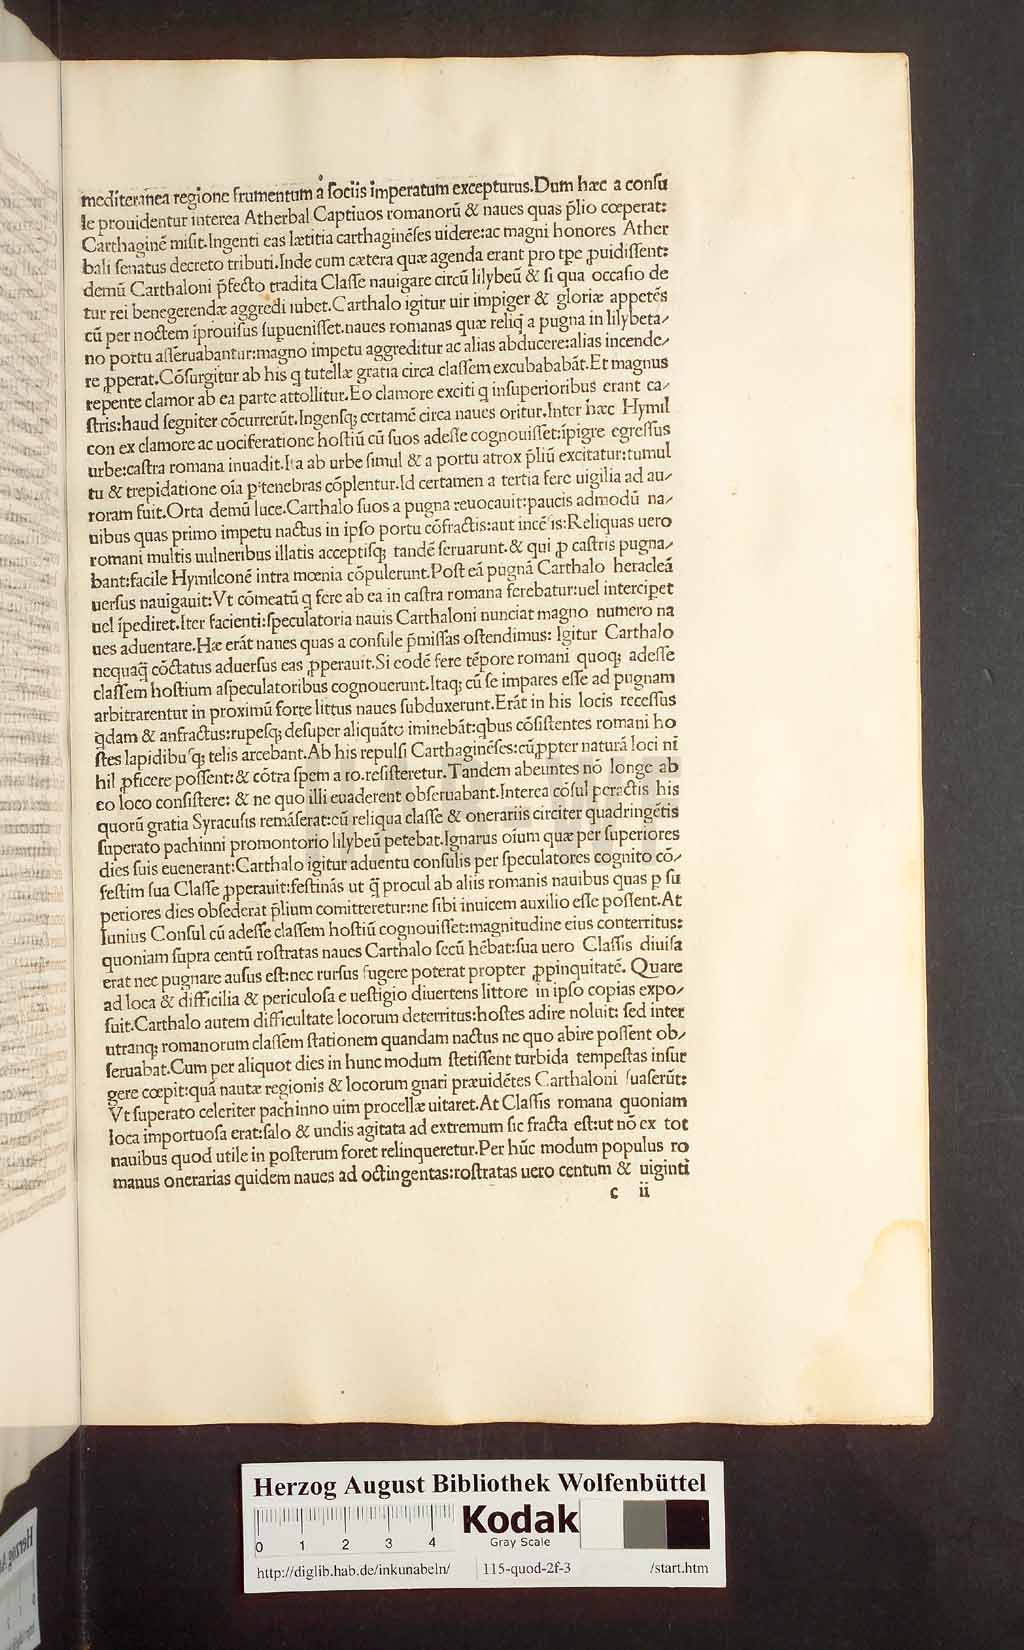 mediteranea regione frumentum a sociis imperatum excepturus.Dum hæc a consu
le prouidentur interea Atherbal Captiuos romanorū & naues quas p̄lio cœperat:
Carthaginē misit.Ingenti eas lætitia carthaginēses uidere:ac magni honores Ather
bali senatus decreto tributi.Inde cum cætera quæ agenda erant pro tpe ꝓuidissent:
demū Carthaloni p̄fecto tradita Classe nauigare circū lilybeū & si qua occasio de
tur rei benegerendæ aggredi iubet.Carthalo igitur uir impiger & gloriæ appetēs
cū per noctem īprouisus supuenisset.naues romanas quæ reliq̄ a pugna in lilybeta/
no portu asseruabantur:magno impetu aggreditur ac alias abducere:alias incende/
re ꝓperat.Cōsurgitur ab his q tutellæ gratia circa classem excubababāt.Et magnus
repente clamor ab ea parte attollitur.Eo clamore exciti q insuperioribus erant ca/
stris:haud segniter cōcurrerūt.Ingensq; certamē circa naues oritur.Inter hæc Hymil
con ex clamore ac uociferatione hostiū cū suos adesse cognouisset:īpigre egressus
urbe:castra romana inuadit.Ita ab urbe simul & a portu atrox p̄liū excitatur:tumul
tu & trepidatione oīa p tenebras cōplentur.Id certamen a tertia fere uigilia ad au/
roram fuit.Orta demū luce.Carthalo suos a pugna reuocauit:paucis admodū na/
uibus quas primo impetu nactus in ipso portu cōfractis:aut incē is:Reliquas uero
romani multis uulneribus illatis acceptisq; tandē seruarunt.& qui ꝓ castris pugna/
bant:facile Hymilconē intra mœnia cōpulerunt.Post eā pugnā Carthalo heracleā
uersus nauigauit:Vt cōmeatū q fere ab ea in castra romana ferebatur:uel intercipet
uel īpediret.Iter facienti:speculatoria nauis Carthaloni nunciat magno numero na
ues aduentare.Hæ erāt naues quas a consule p̄missas ostendimus: Igitur Carthalo
nequaq̄ cōctatus aduersus eas ꝓperauit.Si eodē fere tēpore romani quoq; adesse
classem hostium aspeculatoribus cognouerunt.Itaq; cū se impares esse ad pugnam
arbitrarentur in proximū forte littus naues subduxerunt.Erāt in his locis recessus
q̄dam & anfractus:rupesq; desuper aliquāto iminebāt:qbus cōsistentes romani ho
stes lapidibusq; telis arcebant.Ab his repulsi Carthaginēses:cū ꝓpter naturā loci ni
hil ꝓficere possent:& cōtra spem a ro.resisteretur.Tandem abeuntes nō longe ab
eo loco consistere: & ne quo illi euaderent obseruabant.Interea cōsul peractis his
quorū gratia Syracusis remāserat:cū reliqua classe & onerariis circiter quadringētis
superato pachinni promontorio lilybeū petebat.Ignarus oīum quæ per superiores
dies suis euenerant:Carthalo igitur aduentu consulis per speculatores cognito cō/
festim sua Classe ꝓperauit:festinās ut q̄ procul ab aliis romanis nauibus quas p su
periores dies obsederat p̄lium comitteretur:ne sibi inuicem auxilio esse possent.At
Iunius Consul cū adesse classem hostiū cognouisset:magnitudine eius conterritus:
quoniam supra centū rostratas naues Carthalo secū hēbat:sua uero Classis diuisa
erat nec pugnare ausus est:nec rursus fugere poterat propter ꝓpinquitatē. Quare
ad loca & difficilia & periculosa e uestigio diuertens littore in ipso copias expo/
suit.Carthalo autem difficultate locorum deterritus:hostes adire noluit: sed inter
utranq; romanorum classem stationem quandam nactus ne quo abire possent ob/
seruabat.Cum per aliquot dies in hunc modum stetissent turbida tempestas insur
gere cœpit:quā nautæ regionis & locorum gnari præuidētes Carthaloni suaserūt:
Vt superato celeriter pachinno uim procellæ uitaret.At Classis romana quoniam
loca importuosa erat:salo & undis agitata ad extremum sic fracta est:ut nō ex tot
nauibus quod utile in posterum foret relinqueretur.Per hūc modum populus ro
manus onerarias quidem naues ad octingentas:rostratas uero centum & uiginti
c ii
Herzog August Bibliothek Wolfenbüttel
0 1 2 3 4
Kodak
Gray Scale
http://diglib.hab.de/inkunabeln/ 115-quod-2f-3 /start.htm